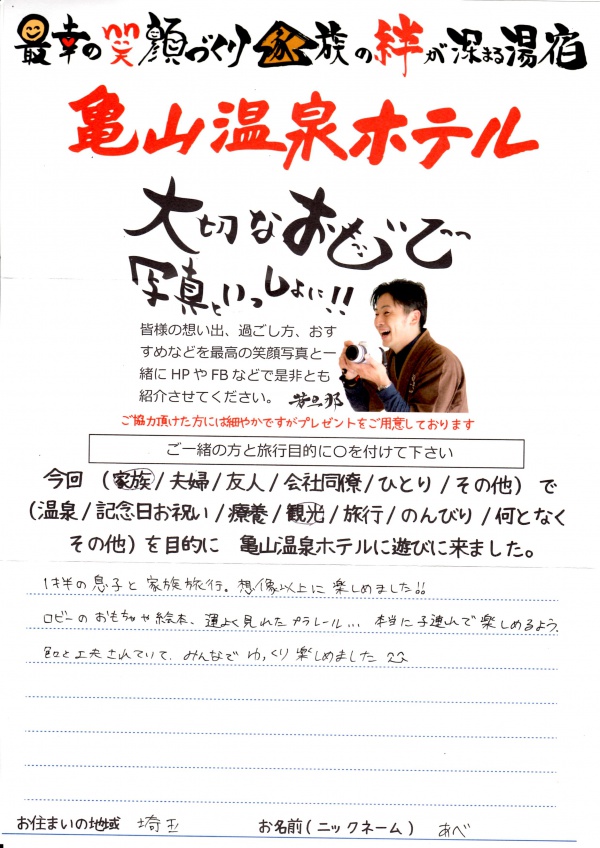 最幸の笑顔づくり家族の絆が深まる湯宿
亀山温泉ホテル
大切なおもいで
写真といっしょに!!
皆様の想い出、過ごし方、おす
すめなどを最高の笑顔写真と一
緒にHPやFBなどで是非とも
紹介させてください。 若旦那
ご協力頂けた方には細やかですがプレゼントをご用意しております
ご一緒の方と旅行目的に〇を付けて下さい
今回 (家族/夫婦/友人/会社同僚/ひとり/その他)で
(温泉/記念日お祝い/療養/観光/旅行/のんびり/何となく
その他)を目的に 亀山温泉ホテルに遊びに来ました。
1才半の息子と家族旅行。想像以上に楽しめました!!
ロビーのおもちゃや絵本、運よく見れたプラレール... 本当に子連れで楽しめるよう、
色々と工夫されていて、みんなでゆっくり楽しめました
お住まいの地域 埼玉 お名前(ニックネーム) あべ